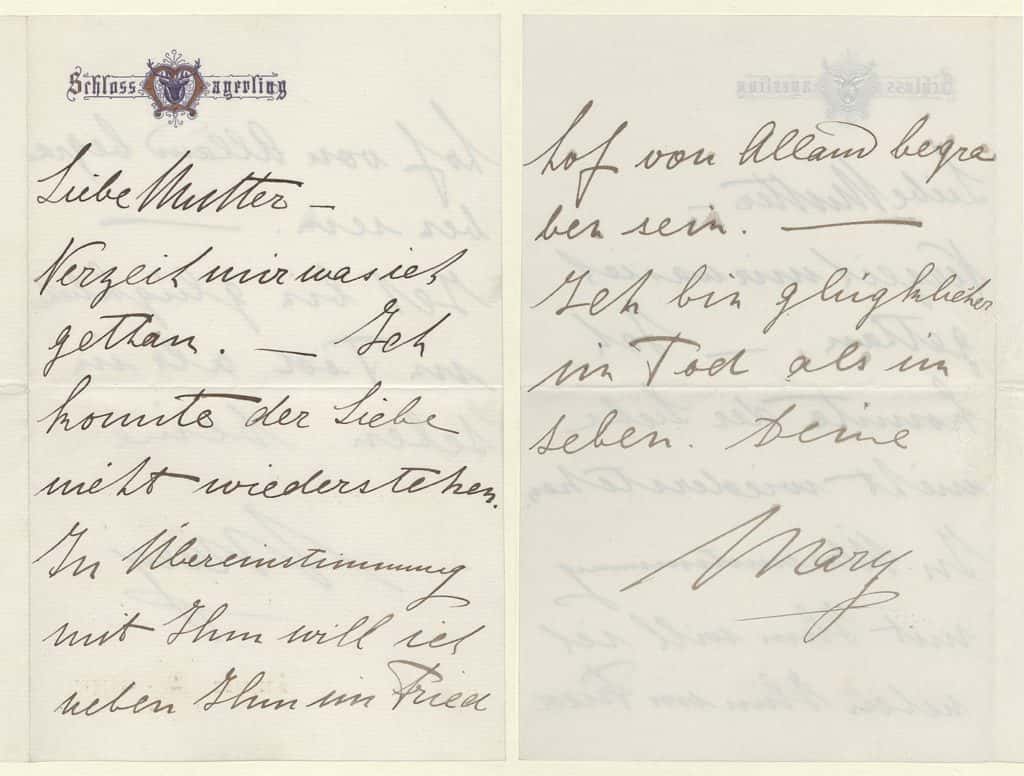 Schloss Mayerling
Liebe Mutter –
Verzeih mir was ich
gethan. – Ich
konnte der Liebe
nicht wiederstehen.
In Übereinstimmung
mit Ihm will ich
neben Ihm im Fried
hof von Alland begra
ben sein. —
Ich bin glügklicher
im Tod als im
Leben. Deine
Mary